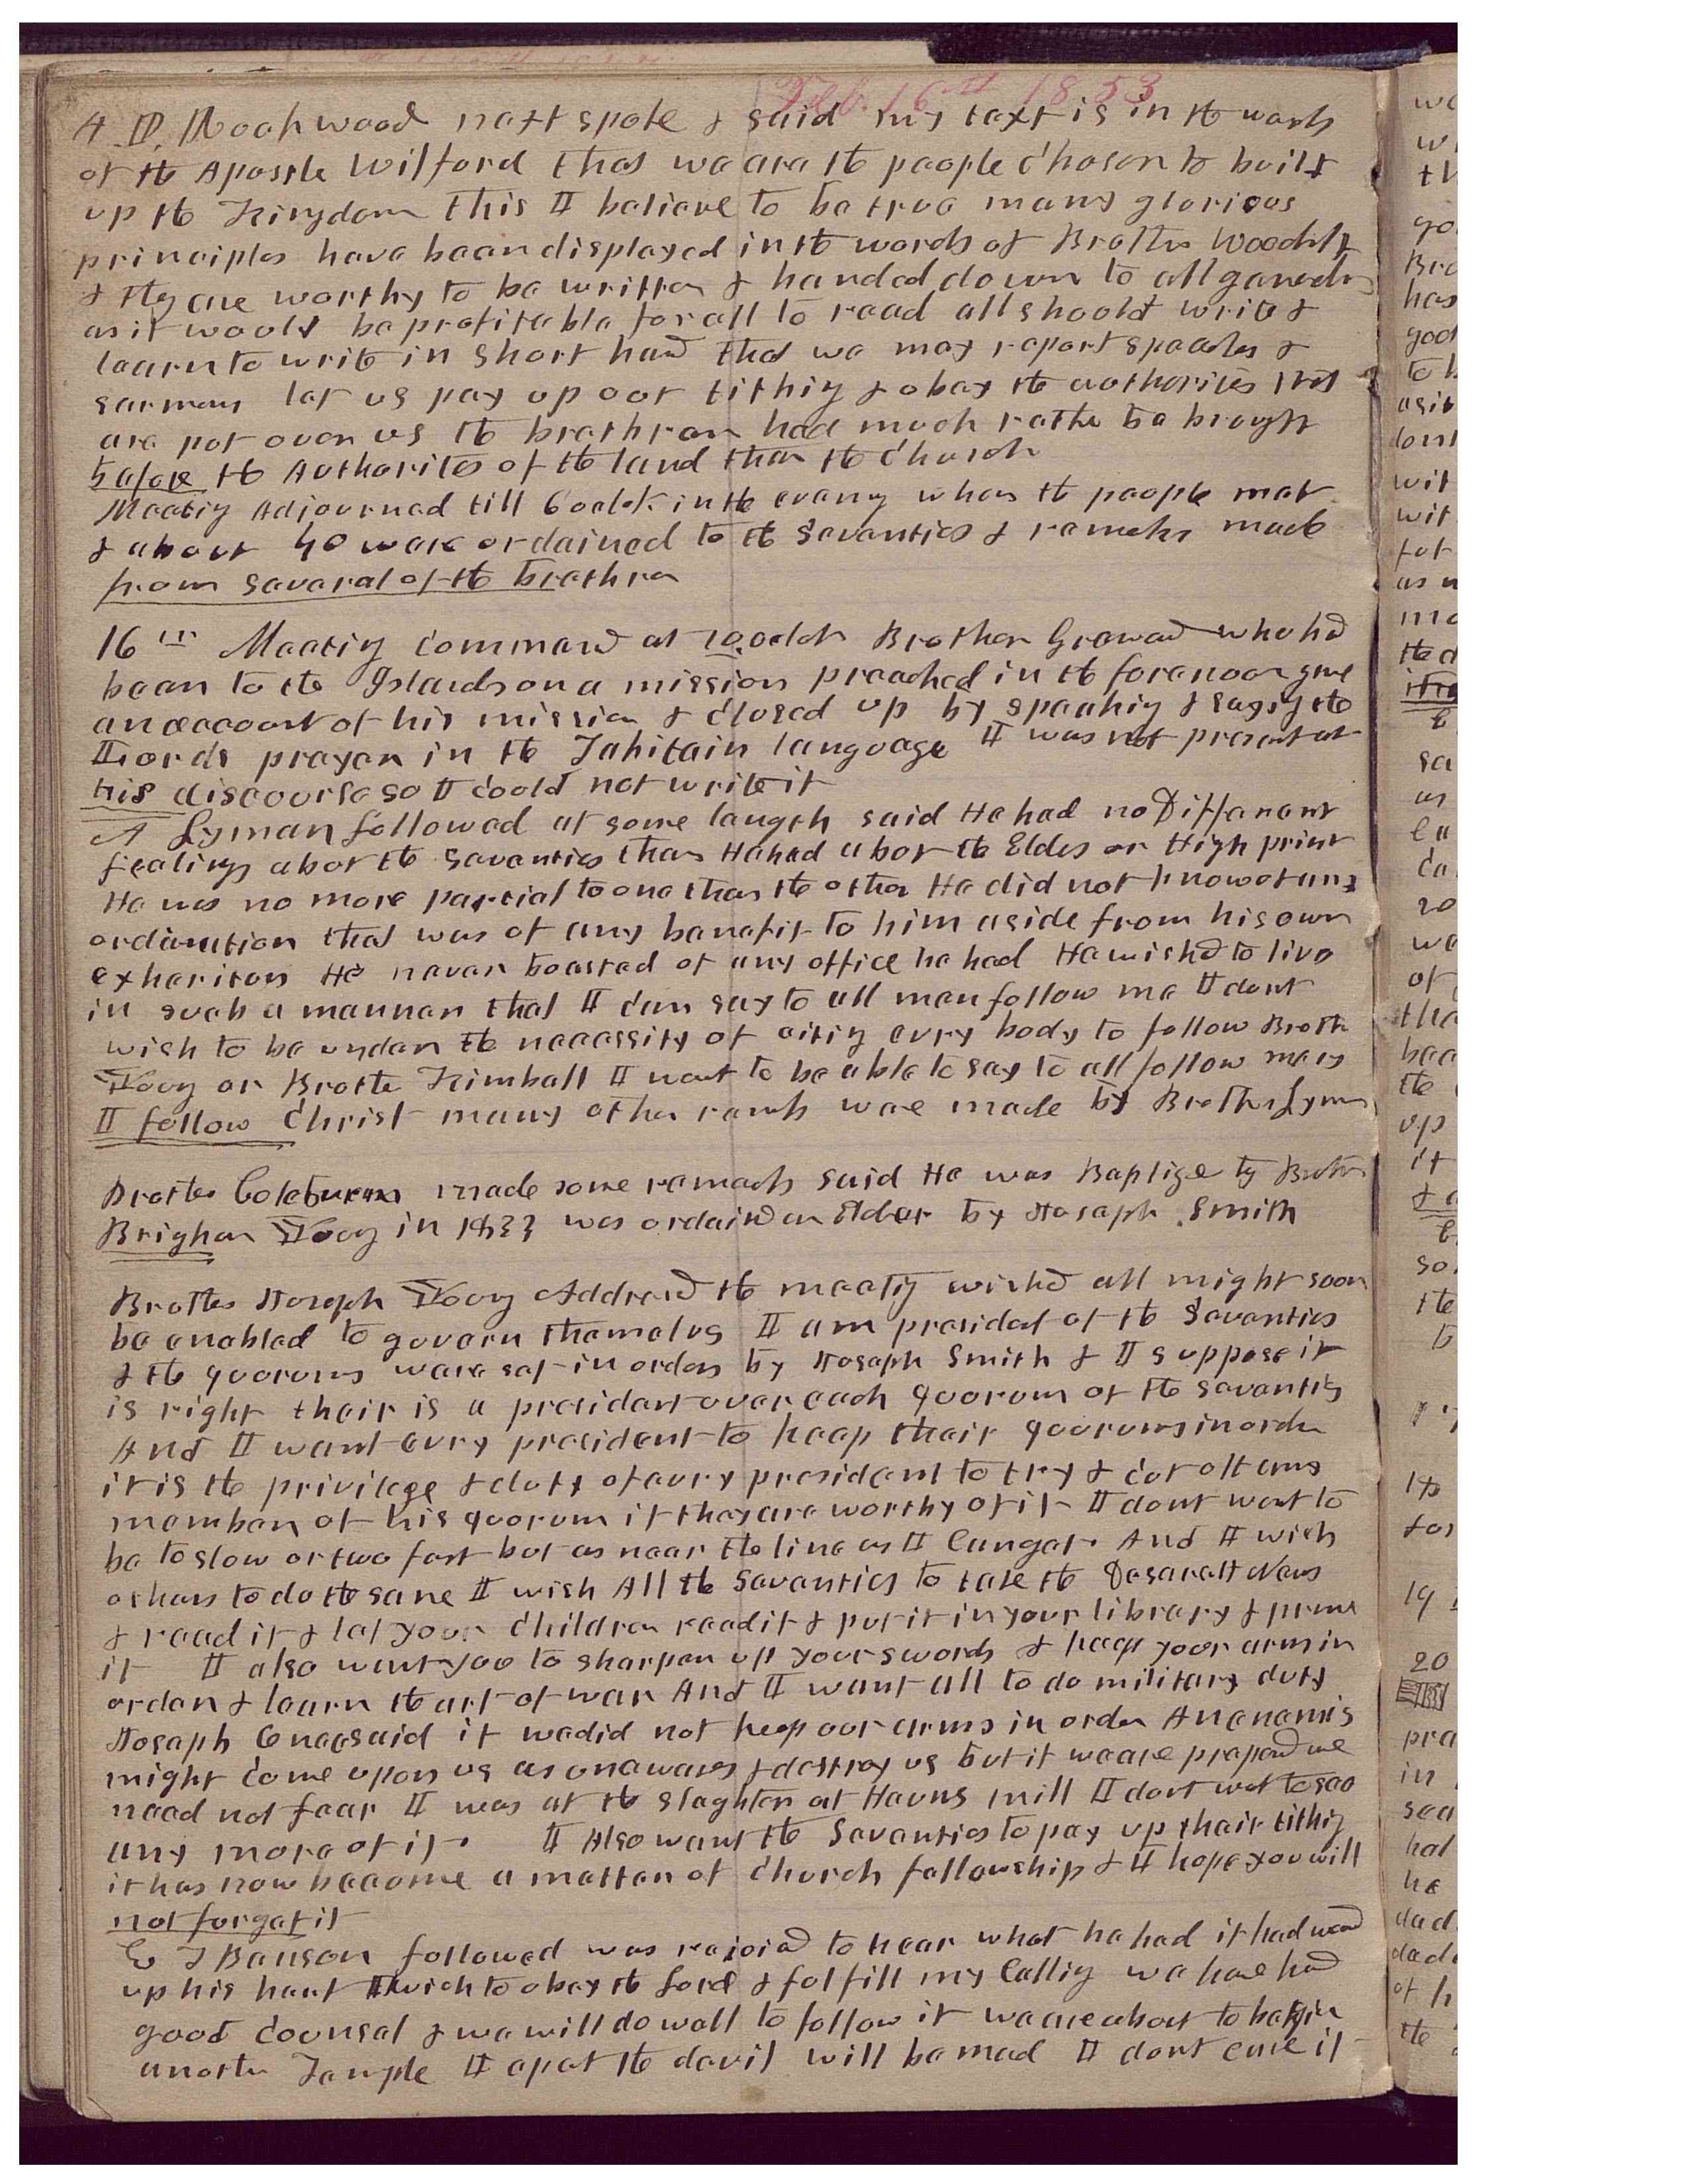 Feb. 16th 1853
A. D. Noah wood next spoke & said my text is in the words
of the Apostle Wilford that we are the people Chosen to built
up the Kingdom this I believe to be true many glorious
principles have been displayed in the words of Brother Woodruff
& they are worthy to be written & handed down to all
as it would be profitable for all to read all should write &
learn to write in short hand that we may report speaches &
sermons let us pay up our tithing & obey the authorities that
are put over us the brethren had much rather be brought
before the Authorites of the land than the Church
Meeting Adjourned till 6 oclok in the evening when the people met
& about 40 ware ordained to the Seventies & made
from several of the brethren
16th Meeting Commencd at 10 oclok Brother who had
been to the Islands on a mission preached in the forenoon gave
an account of his mission & Closed up by speaking & saying the
Lords prayer in the Tahitain language I was not present at
his discourse so I Could not write it
A Lyman followed at some length said He had no Different
feelings about the Seventies than He had about the Elders or High priest
He was no more partial to one than the other He did not know of any
ordination that was of any benefit to him aside from his own
exhertions He never boasted of any office he had He wishd to live
in such a manner that I Can say to all men follow me I dont
wish to be under the necessity of citing evry body to follow Brother
Young or Brother Kimball I want to be able to say to all follow me as
I follow Christ many other remarks ware made by Brother Lyman
Brother Coleburn made some remarks said He was Baptize by Brother
Brigham Young in 1833 was ordaind an Elder by Joseph Smith
Brother Joseph Young Addresd the meeting wishd all might soon
be enabled to govern themselvs I am president of the Seventies
& the quorums ware set in order by Joseph Smith & I suppose it
is right their is a president over each quorum of the seventies
And I want evry president to keep their quorums in order
it is the privilege & duty of evry president to try & Cut off any
member of his quorum if they are worthy of it I dont want to
be to slow or two fast but as near the line as I Can get. And I wish
others to do the same I wish All the Seventies to take the Desarett News
& read it & let your Children read it & put it in your library &
it I also want you to sharpen up your swords & keep your arms in
order & learn the art of war And I want all to do military duty
Joseph once said if we did not keep our arms in order An enemis
might Come upon us as unawares & destroy us but if we are prepared we
need not fear I was at the slaghter at Hauns mill I dont wat to see
any more of it. I Also want the Seventies to pay up their tithing
it has now become a matter of Church fellowship & I hope you will
not forget it
E T Benson followed was rejoicd to hear what he had it had
up his heart I wish to obey the Lord & fulfill my Calling we have had
good Counsel & we will do well to follow it we are about to begin
another Temple I expet the devil will be mad I dont care if